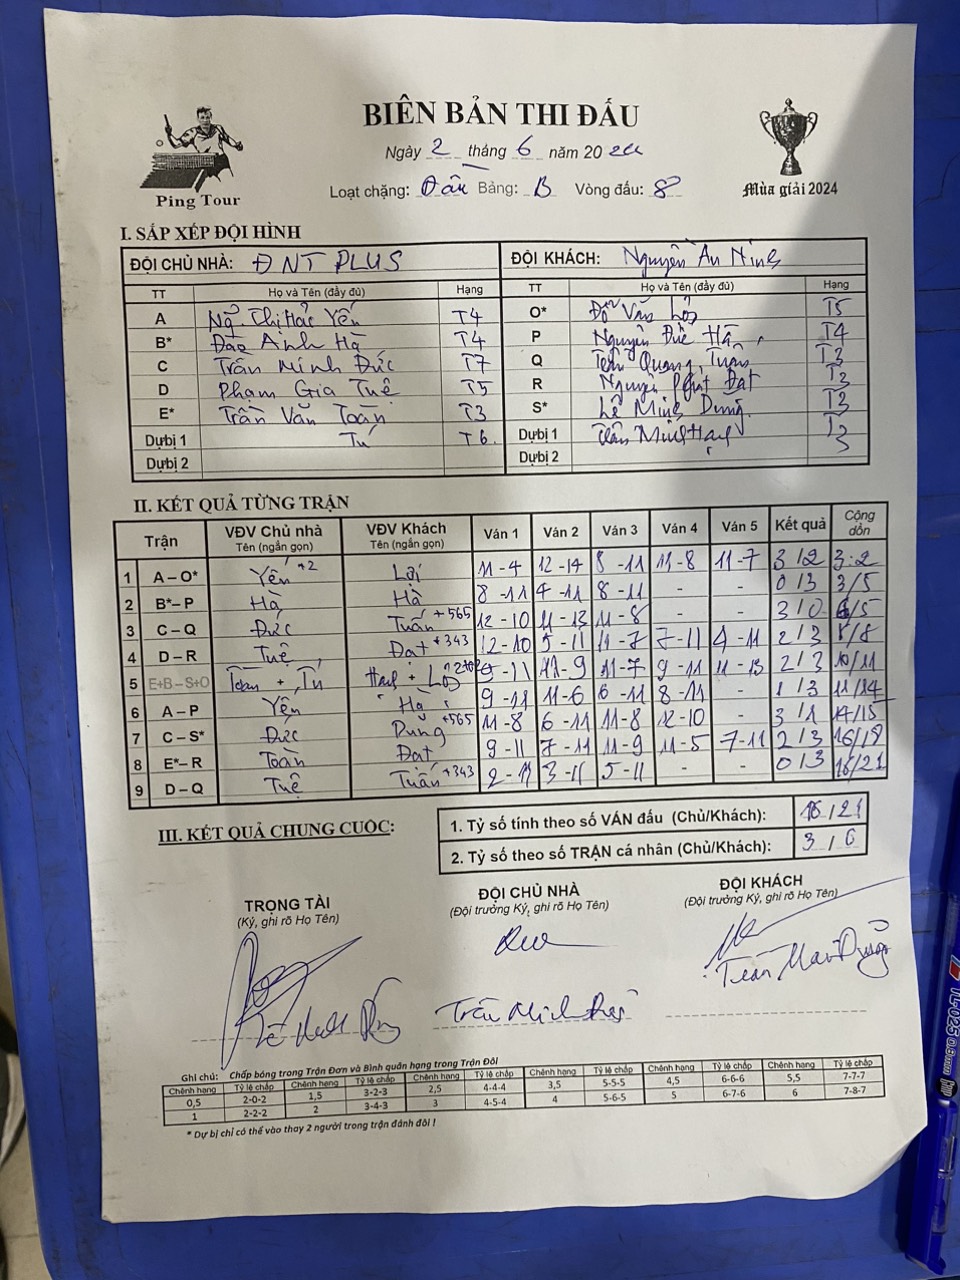 BIÊN BẢN THI ĐẤU
Ngày 2 tháng 6 năm 2024
Ping Tour
Loạt chặng: Đầu Bảng: B Vòng đấu: 8
Mùa giải 2024
I. SẮP XẾP ĐỘI HÌNH
ĐỘI CHỦ NHÀ: ĐNT PLUS ĐỘI KHÁCH: Nguyễn An Ninh
TT Họ và Tên (đầy đủ) Hạng TT Họ và Tên (đầy đủ) Hạng
A Ng. Thị Hải Yến T4 O* Đỗ Văn T5
B* Đào Ánh Hà T4 P Nguyễn Đức Hà T4
C Trần Minh Đức T7 Q Quang Tuấn T3
D Phạm Gia Tuệ T5 R Nguyễn Phát Đạt T3
E* Trần Văn Toàn T3 S* Lê Minh Dũng T3
Dự bị 1 Tú T6 Dự bị 1 T3
Dự bị 2 Dự bị 2
II. KẾT QUẢ TỪNG TRẬN
Trận VĐV Chủ nhà Tên (ngắn gọn) VĐV Khách Tên (ngắn gọn) Ván 1 Ván 2 Ván 3 Ván 4 Ván 5 Kết quả Cộng dồn
1 A – O* Yến +2 11-4 12-14 8-11 11-8 11-7 3/2 3:2
2 B* – P Hà Hà 8-11 4-11 8-11 - - 0/3 3/5
3 C – Q Đức Tuấn +565 12-10 11-8 - - 3/0 6/5
4 D – R Tuệ Đạt +343 12-10 5-11 11-7 7-11 4-11 2/3 8/8
5 E+B – S+O Toàn + Tú 9-11 11-9 11-7 9-11 11-13 2/3 10/11
6 A – P Yến Hà 9-11 11-6 6-11 8-11 - 1/3 11/14
7 C – S* Đức Dũng +565 11-8 6-11 11-8 12-10 - 3/1 14/15
8 E* – R Toàn Đạt 9-11 7-11 11-9 11-5 7-11 2/3 16/18
9 D – Q Tuệ Tuấn +343 2-11 3-11 5-11 0/3 16/21
III. KẾT QUẢ CHUNG CUỘC:
1. Tỷ số tính theo số VÁN đấu (Chủ/Khách): 16/21
2. Tỷ số theo số TRẬN cá nhân (Chủ/Khách): 3/6
TRỌNG TÀI ĐỘI CHỦ NHÀ ĐỘI KHÁCH
(Ký, ghi rõ Họ Tên) (Đội trưởng Ký, ghi rõ Họ Tên) (Đội trưởng Ký, ghi rõ Họ Tên)
Trần Minh
Ghi chú: Chấp bóng trong Trận Đơn và Bình quân hạng trong Trận Đôi
Chênh hạng Tỷ lệ chấp Chênh hạng Tỷ lệ chấp Chênh hạng Tỷ lệ chấp Chênh hạng Tỷ lệ chấp Chênh hạng Tỷ lệ chấp
0,5 2-0-2 1,5 3-2-3 2,5 4-4-4 3,5 5-5-5 4,5 6-6-6 5,5 7-7-7
1 2-2-2 2 3-4-3 3 4-5-4 4 5-6-5 5 6-7-6 6 7-8-7
* Dự bị chỉ có thể vào thay 2 người trong trận đánh đôi !
TL-025 0.8mm